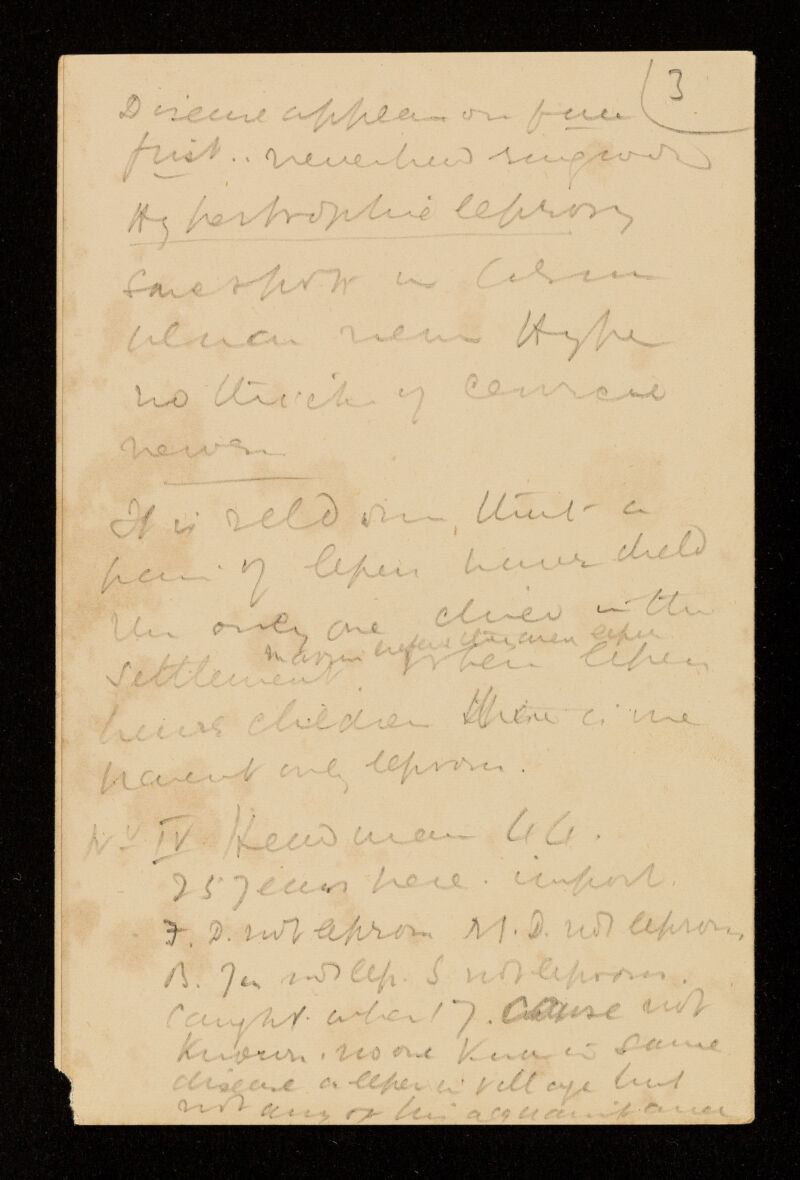 3
Disease appears on face
first .. never had ringworm
Hypertrophic leprosy
Same spots in
never Hype
no thick of course
never
It is seldom that a
pair of lepers have child
only one child in the
settlement When lepers
marry before they are lepers
have children there is one
parent only leprous.
No IV Head man 44.
25 years here. import.
F. D. not leprous M. D. not leprous
B. Yes not lep. S not leprous.
Caught when 17. Cause not
known. no one knew in same
disease a leper in village but
not any of his acquaintance